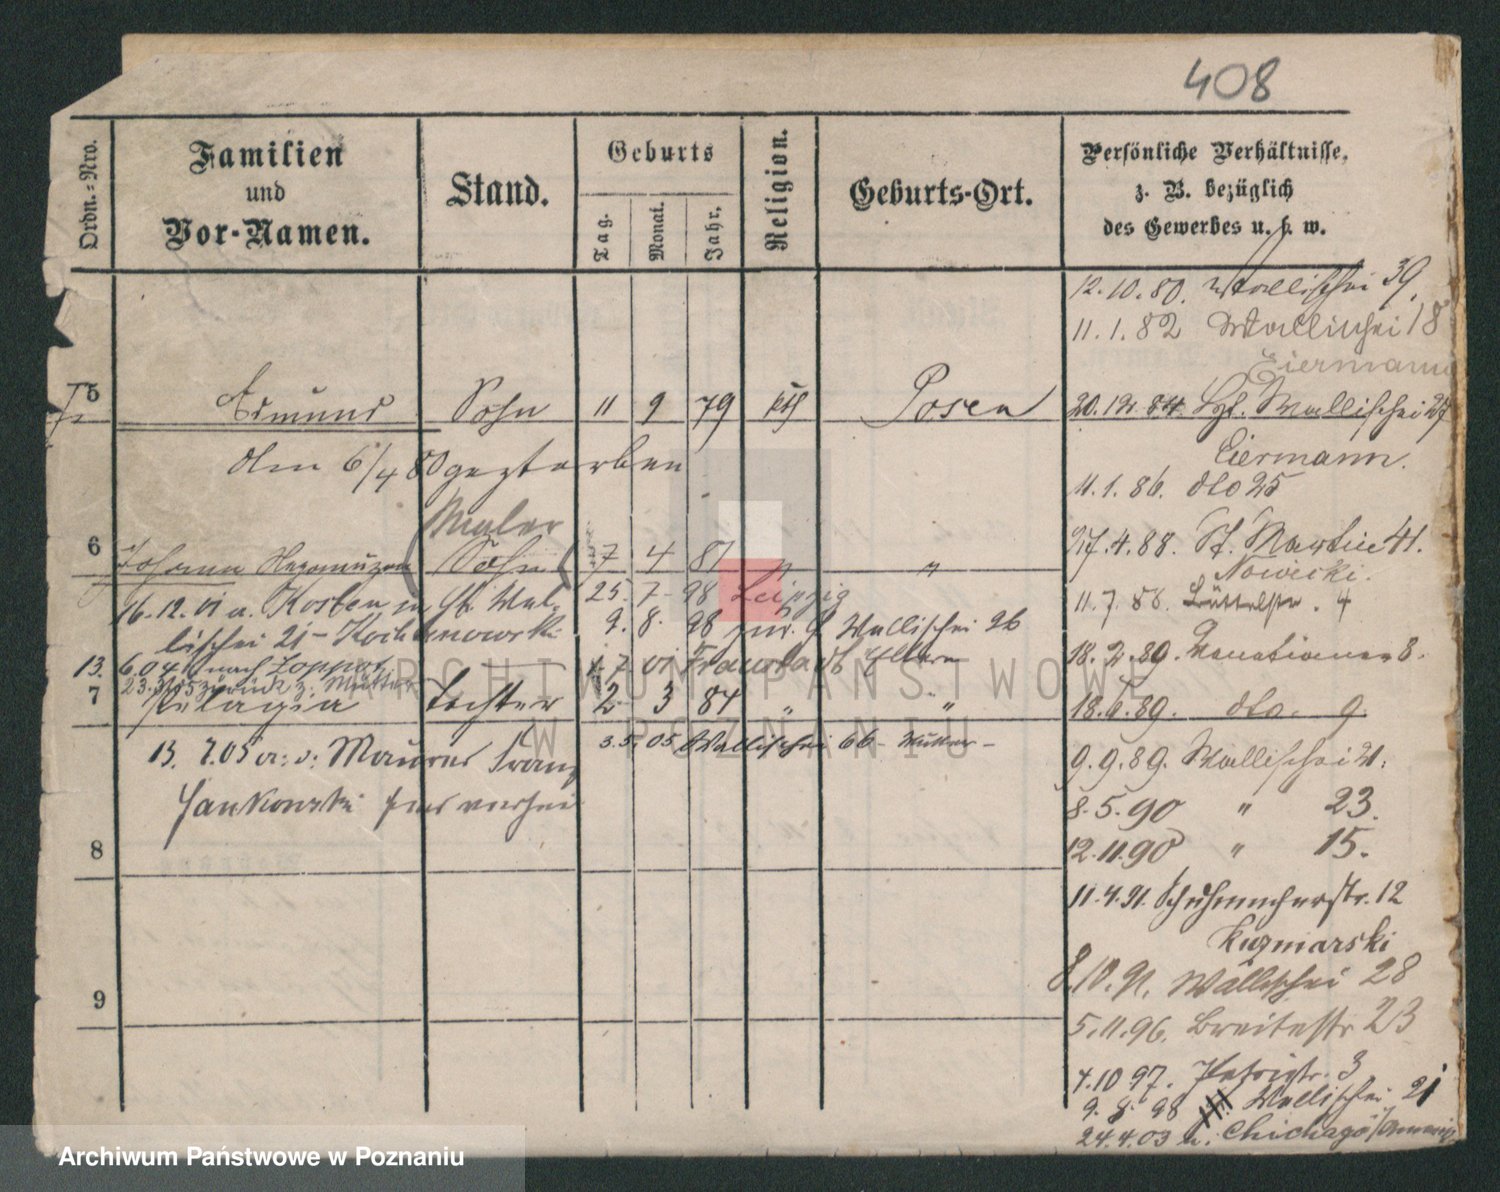 408
Ordn.=Nro.
Familien
und
Vor-Namen.
Stand.
Geburts
Tag.
Monat.
Jahr.
Religion.
Geburts-Ort.
Persönliche Verhältnisse,
z. B. bezüglich
des Gewerbes u. s. w.
12.10.80. Wallischei 39.
11.1.82 Wallischei 18
Eiermann
5 Edmund Sohn 11 9 79 kth Posen
20.12.84. Wallischei 27
Eiermann.
den 6/4 80 gestorben
11.1.86. dto 25
Maler
27.4.88. St. Martin 41.
Nowicki.
6 Johann Nepomuzen Sohn 7 4 81 " "
11.7.88. Büttelstr. 4
16.12.01 a. Kosten St. Wal-
25.7.98 Leipzig
lischei 21 - Kochanowski
9.8.98 zur. Wallischei 26
18.2.89. 8.
13. 6 04 nach Zoppot
1.7.01 Fraustadt Eltern
23.3.05 zurück z. Mutter
7 Pelagia Tochter 2 3 84 " "
18.6.89. dto. 9.
3.5.05 Wallischei 66 - Mutter -
13. 7.05 a: d: Maurer Franz
Jankowski verhei
9.9.89. Wallischei 21.
8.5.90 " 23.
8
12.11.90 " 15.
11.4.91. Schuhmacherstr. 12
Kuzniarski
8.10.91. Wallischei 28
9
5.11.96. Breitestr 23
4.10.97. 3
9.8.98 Wallischei 21
24.4.03 n. Chicago/Amerika
ARCHIWUM PAŃSTWOWE
W POZNANIU
Archiwum Państwowe w Poznaniu